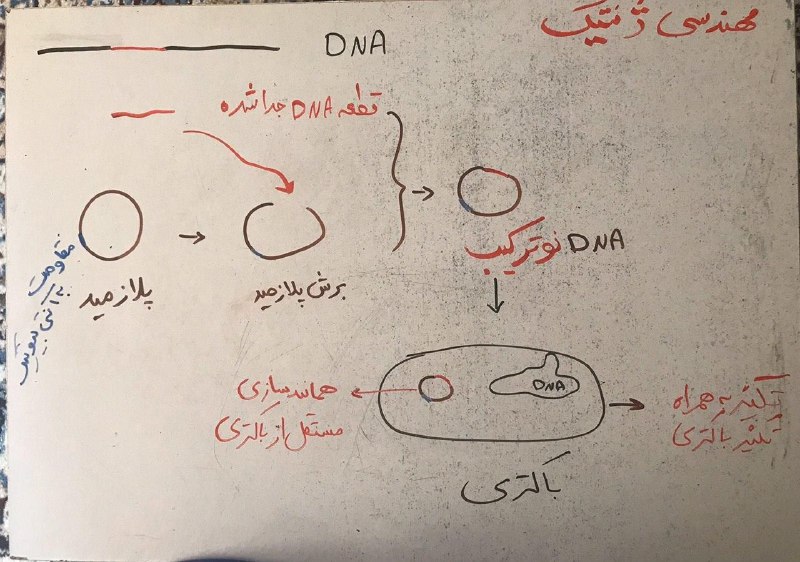 مهندسی ژنتیک
DNA
قطعه DNA جدا شده
مقاومت
به آنتی بیوتیک
پلازمید
برش پلازمید
DNA نوترکیب
DNA
همانندسازی
مستقل از باکتری
تکثیر به همراه
تکثیر باکتری
باکتری